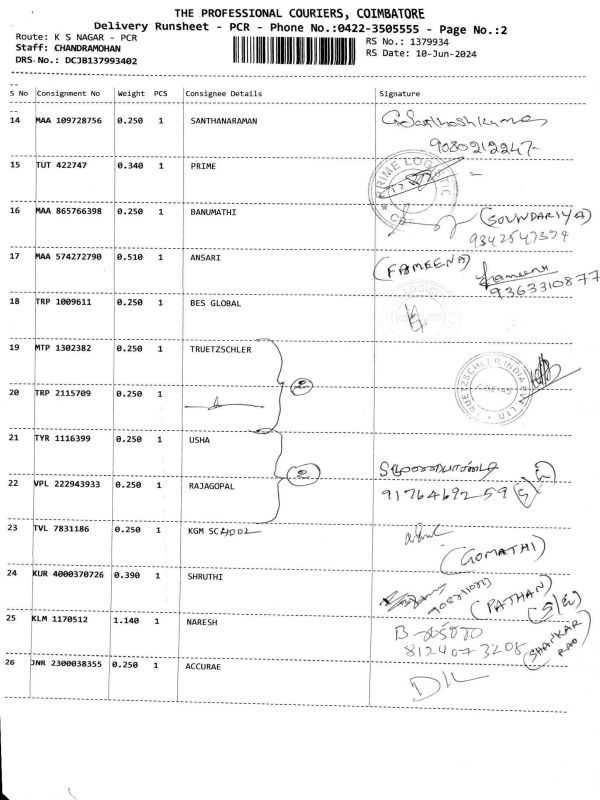 THE PROFESSIONAL COURIERS, COIMBATORE
Delivery Runsheet - PCR - Phone No.:0422-3505555 - Page No.:2
Route: K S NAGAR - PCR
RS No.: 1379934
Staff: CHANDRAMOHAN
RS Date: 10-Jun-2024
DRS No.: DCJB137993402
S No Consignment No Weight PCS Consignee Details Signature
14 MAA 109728756 0.250 1 SANTHANARAMAN G Santhoshkumar
9080212247
15 TUT 422747 0.340 1 PRIME
PRIME LOGISTIC
16 MAA 865766398 0.250 1 BANUMATHI (SOUNDARIYA)
9342547374
17 MAA 574272790 0.510 1 ANSARI (FAMEENA) Fameena
9363310877
18 TRP 1009611 0.250 1 BES GLOBAL
19 MTP 1302382 0.250 1 TRUETZSCHLER
2
TRUETZSCHLER INDIA PVT LTD
20 TRP 2115709 0.250 1
21 TYR 1116399 0.250 1 USHA
2
22 VPL 222943933 0.250 1 RAJAGOPAL 9176469259
23 TVL 7831186 0.250 1 KGM SCHOOL
(GOMATHI)
24 KUR 4000370726 0.390 1 SHRUTHI (PATHAN)
(S/G)
25 KLM 1170512 1.140 1 NARESH
8124073208 (SHANKAR RAO)
26 JNR 2300038355 0.250 1 ACCURAE